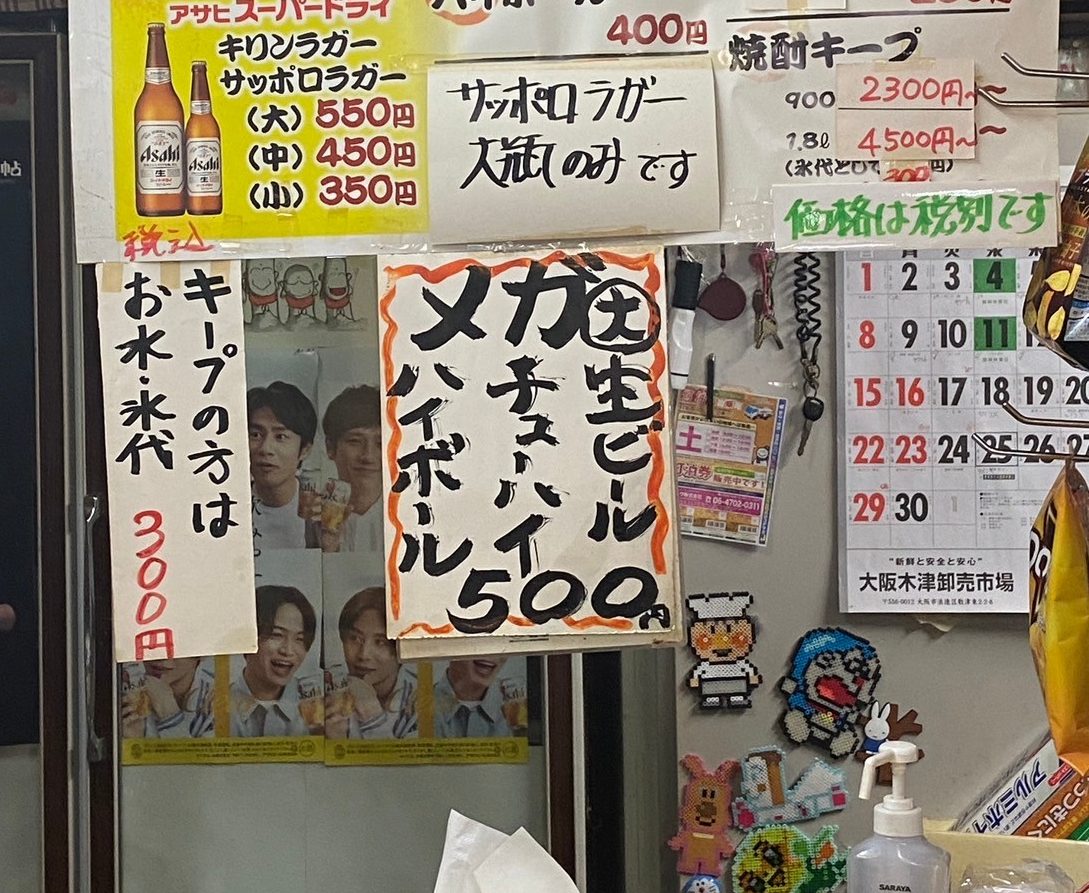 アサヒスーパードライ
キリンラガー
サッポロラガー
(大) 550円
(中) 450円
(小) 350円
税込
Asahi
生
Asahi
生
400円
サッポロラガー
大瓶のみです
焼酎キープ
900
2300円~~
1.8ℓ
4500円~~
(氷代として300円)
価格は税別です
キープの方は
お水・氷代
300円
大生ビール
ガチューハイ
メハイボール
500円
Asahi
土
販売中です!
06-4702-0311
1 2 3 4
8 9 10 11
15 16 17 18 19 20
22 23 24 25 26
29 30 1
"新鮮と安全と安心"
大阪木津卸売市場
〒556-0012 大阪市浪速区敷津東2-2-8
SARAYA
アルミホイ